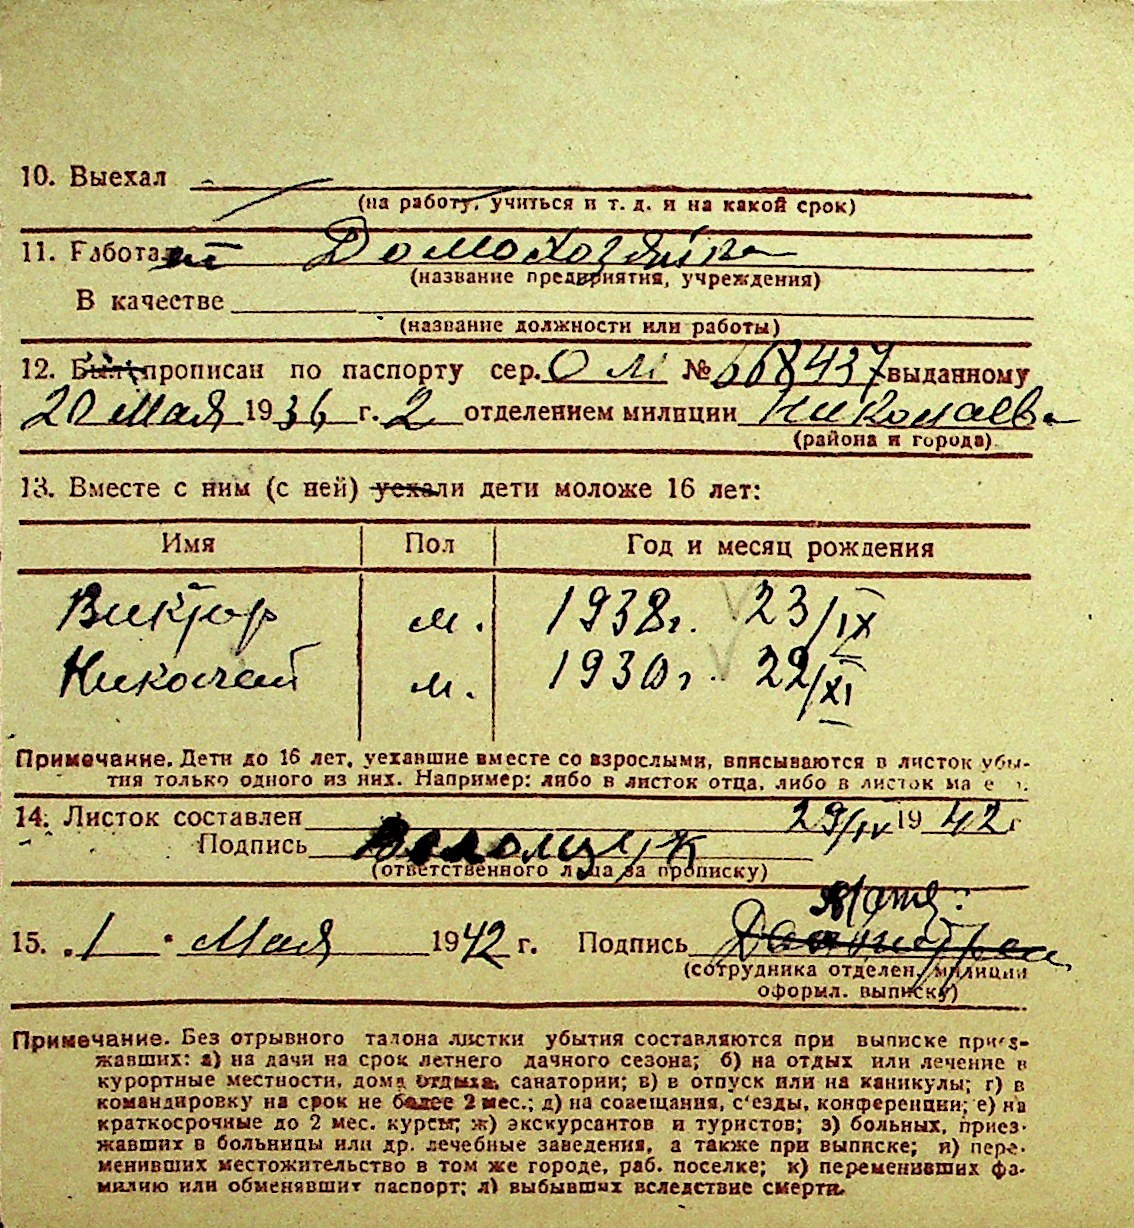 10. Выехал
(на работу, учиться и т. д. и на какой срок)
11. Работает Домохозяйка
(название предприятия, учреждения)
В качестве
(название должности или работы)
12. Был прописан по паспорту сер. ОМ № 668437 выданному
20 Мая 1936 г. 2 отделением милиции Николаев
(района и города)
13. Вместе с ним (с ней) уехали дети моложе 16 лет:
Имя Пол Год и месяц рождения
Виктор м. 1938г. 23/IX
Николай м. 1930г. 22/XI
Примечание. Дети до 16 лет, уехавшие вместе со взрослыми, вписываются в листок убы-
тия только одного из них. Например: либо в листок отца, либо в листок ма е
14. Листок составлен 29/IV 1942 г
Подпись
(ответственного лица за прописку)
15. 1 Мая 1942 г. Подпись
(сотрудника отделен. милиции
оформл. выписку)
Примечание. Без отрывного талона листки убытия составляются при выписке приез-
жавших: а) на дачи на срок летнего дачного сезона; б) на отдых или лечение в
курортные местности, дома отдыха, санатории; в) в отпуск или на каникулы; г) в
командировку на срок не более 2 мес.; д) на совещания, с'езды, конференции; е) на
краткосрочные до 2 мес. курсы; ж) экскурсантов и туристов; з) больных, приез-
жавших в больницы или др. лечебные заведения, а также при выписке; и) пере-
менивших местожительство в том же городе, раб. поселке; к) переменивших фа-
милию или обменявших паспорт; л) выбывших вследствие смерти.